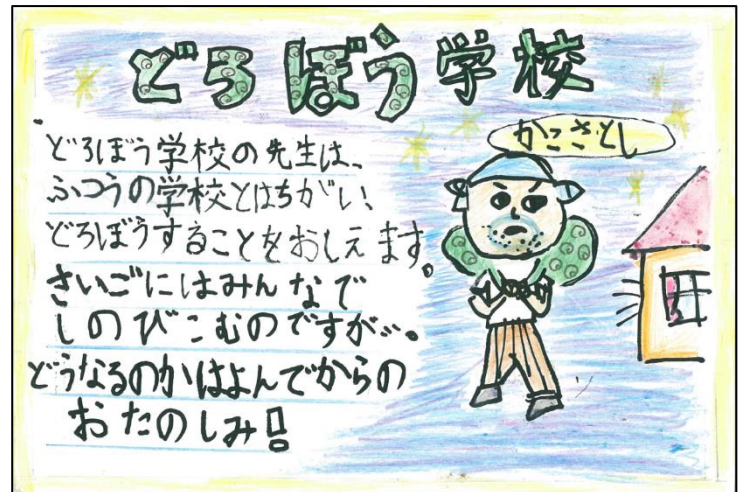 どろぼう学校
かこさとし
どろぼう学校の先生は、
ふつうの学校とはちがい、
どろぼうすることをおしえます。
さいごにはみんなで
しのびこむのですが…。
どうなるのかはよんでからの
おたのしみ!!